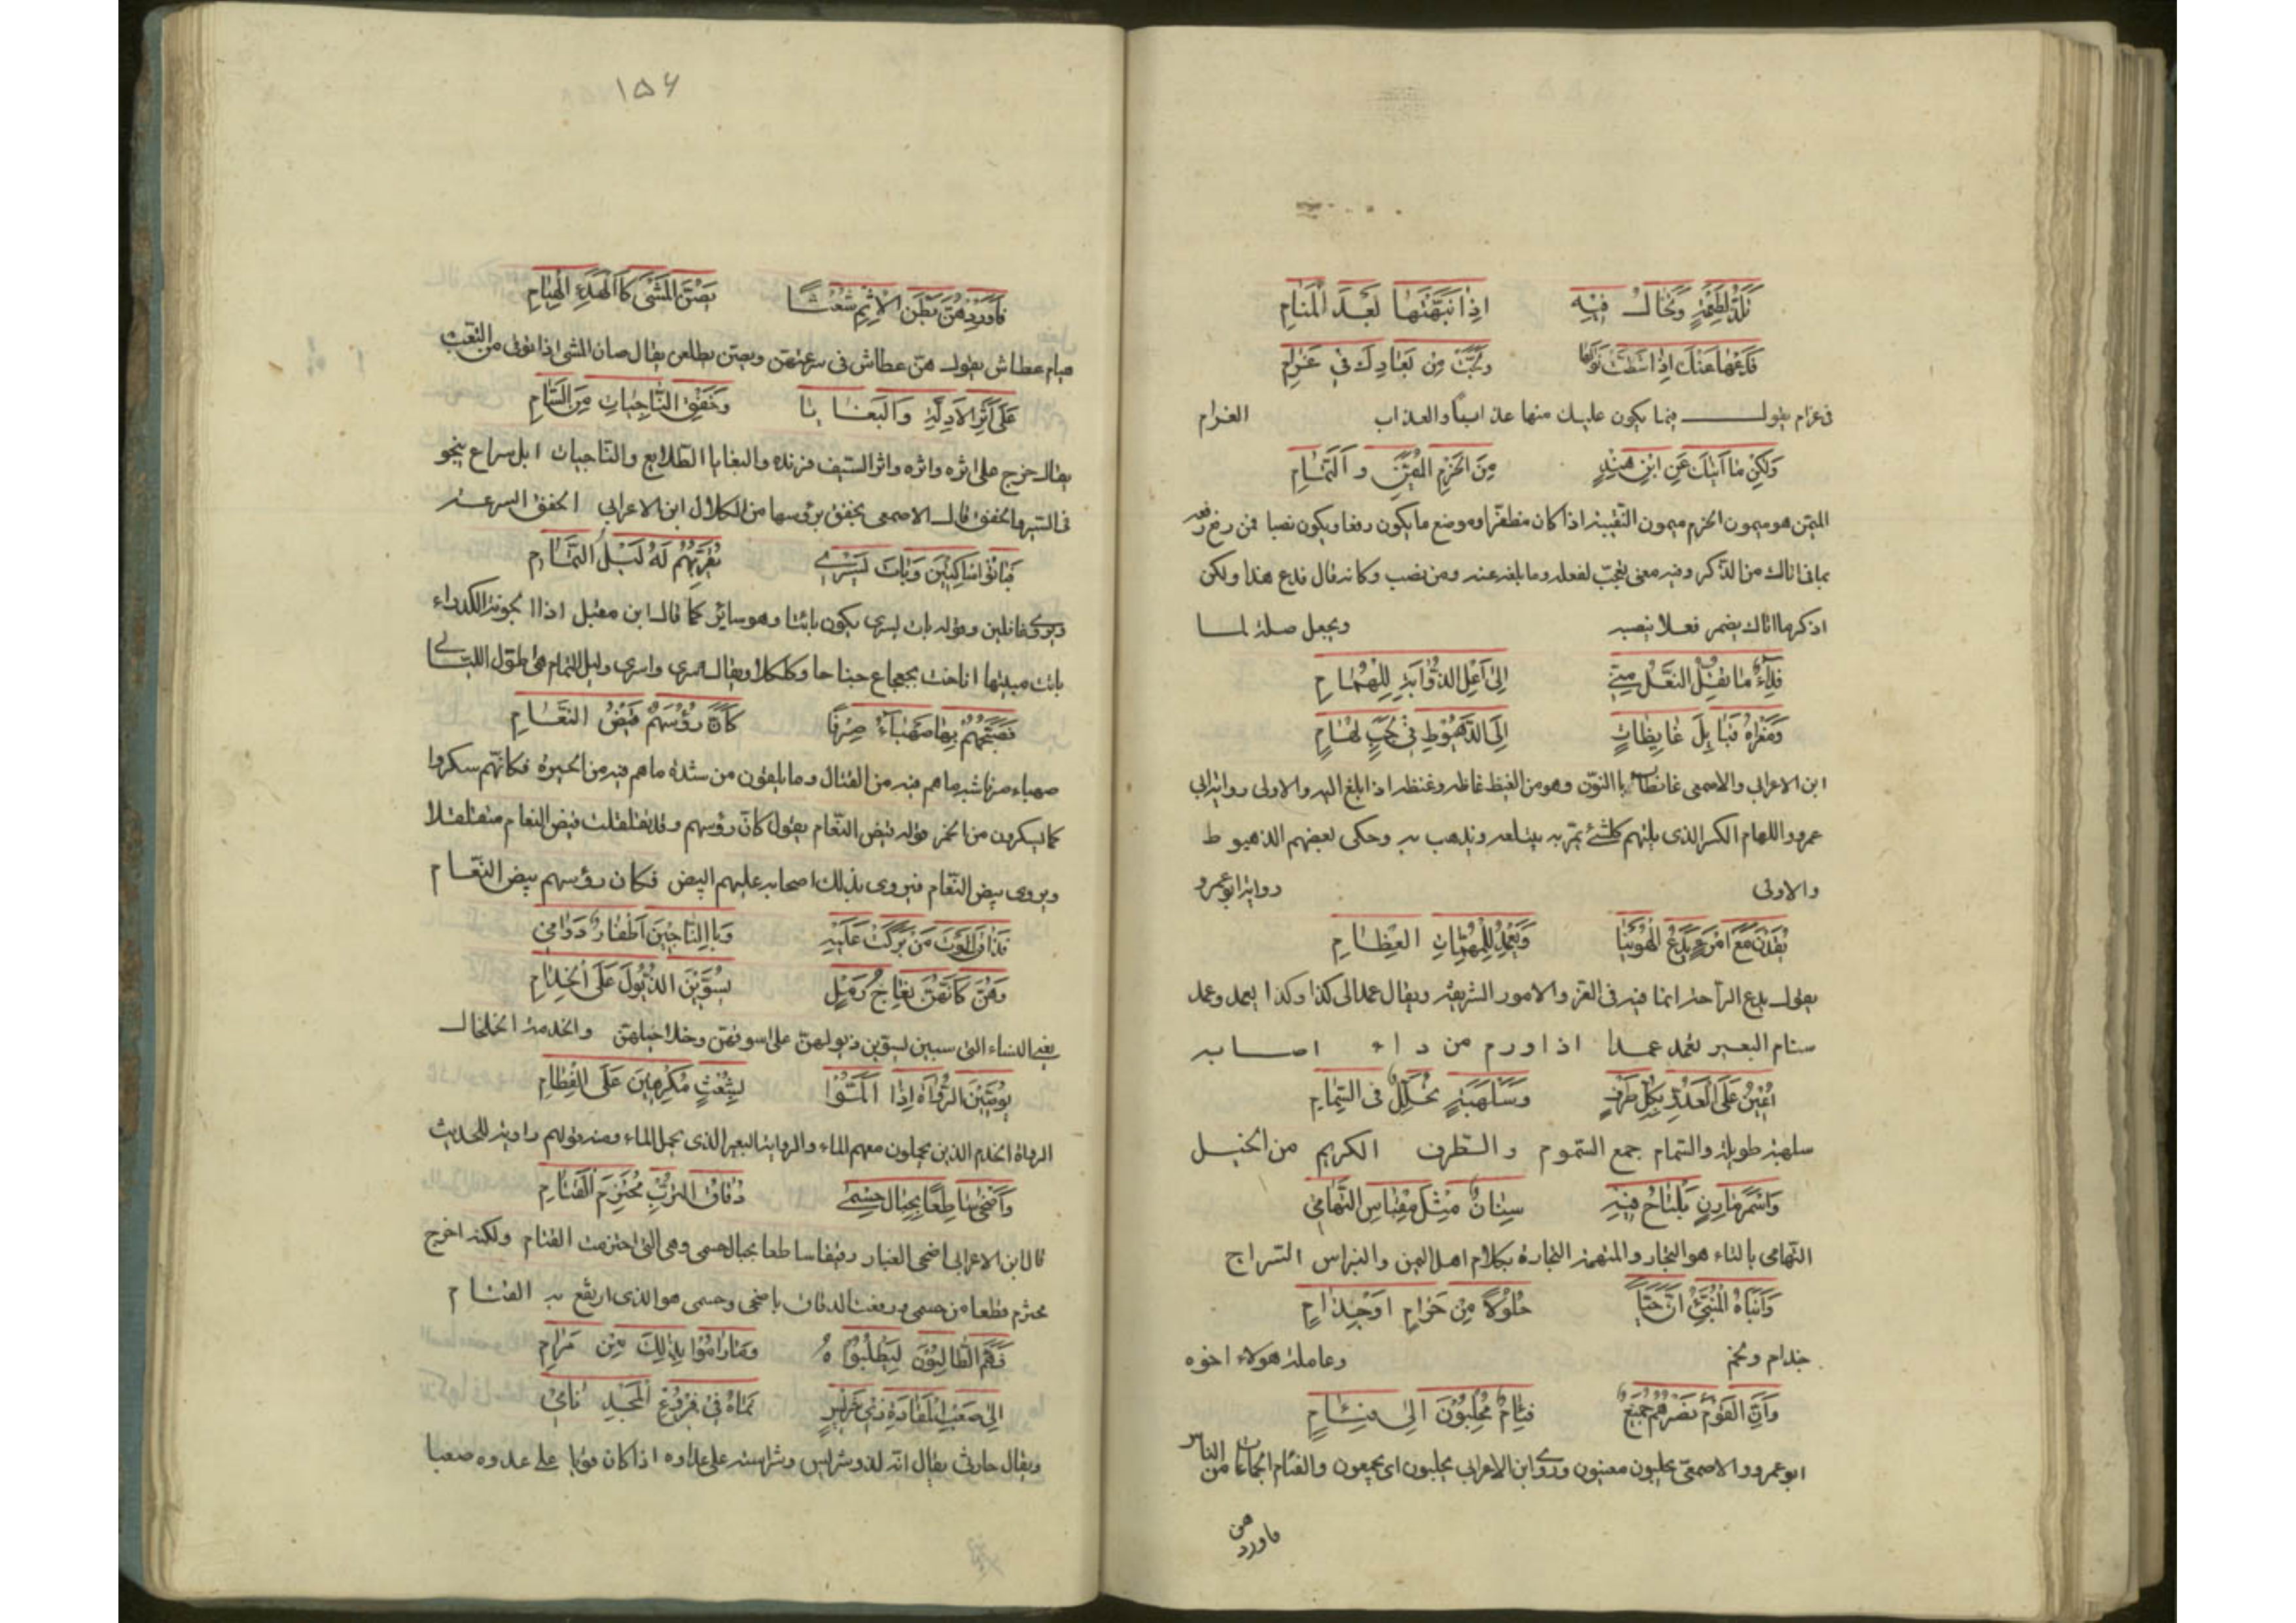 تلذ لطعمه وتخال فيه اذا نبهتها بعد المنام
فدعها عنك اذا شطت نواها ولجت من بعادك في غرام
في غرام يقول فيما يكون عليك منها عذابا والعذاب الغرام
ولكن ما اتاك عن ابن هند من الحزم المبين والتمام
الميمن هو ميمون الحزم ميمون النقيبة اذا كان مظفرا وموضع ما يكون رفعا ويكون نصبا فمن رفع رفعه
بما في اتاك من الذكر وفيه معنى تعجب لفعله وما بلغه عنه ومن نصب وكانه قال فدع هذا ولكن
اذكر ما اتاك يضمر فعلا نصبه ويجعل صلة لما
فداء ما تقل النعل مني الى اعلى الذؤابة للهمام
ومغزاه قبايل غايظات الى الذهيوط في لجب لهام
ابن الاعرابي والاصمعي غانظات بالنون وهو من الغيظ غاظه وغنظه اذا ابلغ اليه والاولى رواية ابي
عمرو واللهام الكثير الذي يلتهم كل شئ يمر به يبتلعه ويذهب به وحكى بعضهم الذهيوط
والاولى رواية ابو عمرو
يقدن مع امرء يدع الهوينا ويعمد للمهمات العظام
يقول يدع الراحة انما فيه في العز والامور الشريفة ويقال عمد الى كذا وكذا يعمد وعمد
سنام البعير يعمد عمدا اذا ورم من داء اصابه
اعين على العدو بكل طرف وسلهبة تجلل في السمام
سلهبة طويلة والسمام جمع السموم والطرف الكريم من الخيل
واسمر مارن يلتاح فيه سنان مثل مقباس التهامي
التهامي بالتاء هو النجار والمنهمة النجارة بكلام اهل اليمن والنبراس السراج
وانباه المنبئ ان حيا حلولا من حرام او جذام
جذام ولخم وعاملة هولاء اخوه
وان القوم نصرهم جميع فئام مجلبون الى فئام
ابو عمرو والاصمعي يجلبون معينون وروى ابن الاعرابي يجلبون اي يجمعون والفئام الجماعات من الناس
فاوردهن
١٥٦
فاوردهن بطن الاتم شعثا يصن المشي كالهدء الهيام
هيام عطاش يقول هن عطاش في سرعتهن ويصن يظلعن يقال صان المشي اذا توقى من التعب
على اثر الادلة والبغايا وخفق الناجيات من السام
يقال خرج على اثره واثره واثر السيف فرنده والبغايا الطلايع والناجيات ابل سراع ينجو
في السير والخفق قال الاصمعي يخفق برؤسها من الكلال ابن الاعرابي الخفق السرعة
فباتوا ساكنين وبات يسري يقربهم له ليل التمام
ويروى غافلين وقوله بات يسري يكون بائتا وهو سائر كما قال ابن مقبل اذا الجونة الكدراء
باتت مبيتها اناخت بجعجاع جناحا وكلكلا ويقال سرى واسرى وليل التمام هي طول الليالي
فصبحهم بها صهباء صرفا كان رؤسهم بيض النعام
صهباء صرفا شبه ما هم فيه من القتال وما يلقون من شدة ما هم فيه من الحيرة فكانهم سكروا
كما يسكرون من الخمر قوله فيض النعام يقول كان رؤسهم وقد تفلقت فيض النعام متفلقلا
ويروى بيض النعام فيروى بذلك اصحابه عليهم البيض فكان رؤسهم بيض النعام
فذاق الموت من بركت عليه وبالناجين اظفار دوامي
وهن كانهن نعاج رمل يسوين الذيول على الخدام
يعني النساء التي سبين يسوين ذيولهن على اسوقهن وخلاخيلهن والخدمة الخلخال
يوصين الرواة اذا المتوا بشعث مكرهين على الفطام
الرواة الخدم الذين يحملون معهم الماء والراوية البعير الذي يحمل الماء ومنه قولهم راوية للحديث
واضحى ساطعا بجبال حسمى دقاق الترب محتزم القتام
قال ابن الاعرابي اضحى الغبار دقيقا ساطعا بجبال حسمى وهي التي احتزمت القتام ولكنه اخرج
محتزم قطعا من حسمى ورفعت الدقاق باضحى وحسمى هو الذي ارتفع به القتام
فهم الطالبون ليطلبوه وما راموا بذلك من مرام
الى صعب المقادة ذي شريس نماه في فروع المجد نامي
ويقال حارث يقال انه لذو شريس وشراسة على عداوه اذا كان قويا على عدوه صعبا